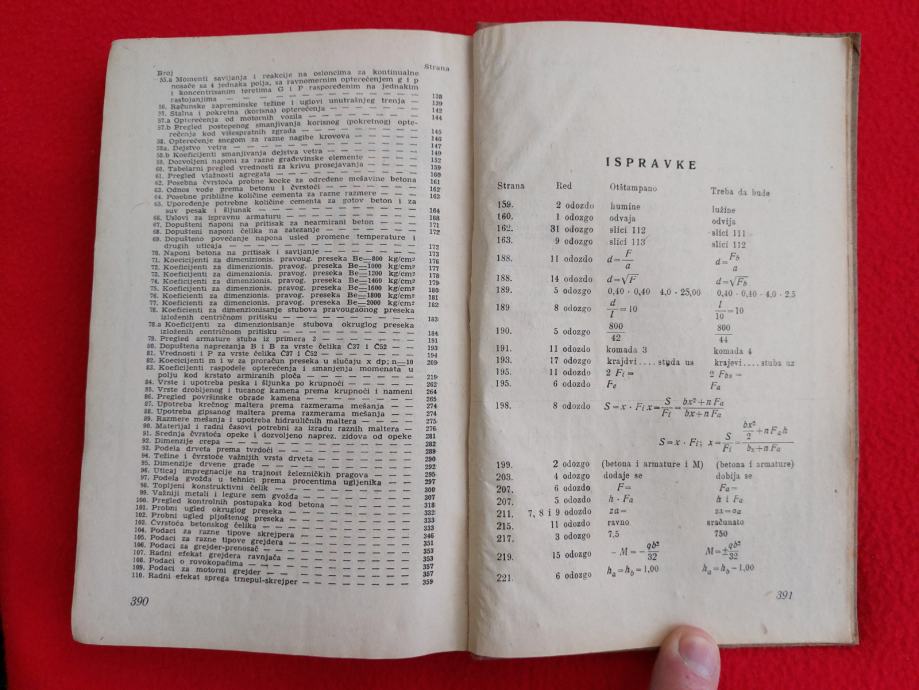 Broj Strana
55.a Momenti savijanja i reakcije na osloncima za kontinualne
nosače sa 4 jednaka polja, sa ravnomernim opterećenjem g i p
i koncentrisanim teretima G i P raspoređenim na jednakim
rastojanjima — 138
56. Računske zapreminske težine i uglovi unutrašnjeg trenja — 139
57. Stalna i pokretna (korisna) opterećenja — 142
57.a Opterećenja od motornih vozila — 144
57.b Pregled postepenog smanjivanja korisnog (pokretnog) opte-
rećenja kod višespratnih zgrada — 145
58. Opterećenje snegom za razne nagibe krovova — 146
58a. Dejstvo vetra — 147
58.b Koeficijenti smanjivanja dejstva vetra — 149
59. Dozvoljeni naponi za razne građevinske elemente — 152
60. Tabelarni pregled vrednosti za krivu prosejavanja — 159
61. Pregled vlažnosti agregata — 160
62. Posebna čvrstoća probne kocke za određene mešavine betona 161
63. Odnos vode prema betonu i čvrstoći — 162
64. Posebne približne količine cementa za razne razmere — 163
65. Upoređenje potrebne količine cementa za gotov beton i za
suv pesak i šljunak — 164
66. Uslovi za ispravnu armaturu — 168
67. Dopušteni naponi na pritisak za nearmirani beton — 171
68. Dopušteni naponi čelika na zatezanje — 171
69. Dopušteno povećanje napona usled promene temperature i
drugih uticaja — 172
70. Naponi betona na pritisak i savijanje — 173
71. Koeicijenti za dimenzionis. pravoug. preseka Be—800 kg/cm² 176
72. Koeficijenti za dimenzionis. pravog. preseka Be—1000 kg/cm² 177
73. Koeficijenti za dimenzionis. pravog. preseka Be—1200 kg/cm² 178
74. Koeficijenti za dimenzionis. pravog. preseka Be—1400 kg/cm² 179
75. Koeficijenti za dimenzionis. pravog. preseka Be—1600 kg/cm² 180
76. Koeficienti za dimenzionis. pravog. preseka Be—1800 kg/cm² 181
77. Koeficijenti za dimenzionis. pravog. preseka Be—2000 kg/cm² 182
78. Koeficijenti za dimenzionisanje stubova pravougaonog preseka
izloženih centričnom pritisku — 183
78.a Koeficijenti za dimenzionisanje stubova okruglog preseka
izloženih centričnom pritisku — 184
79. Pregled armature stuba iz primera 2 — 191
80. Dopuštena naprezanja B i B za vrste čelika Č37 i Č52 — 193
81. Vrednosti i P za vrste čelika Č37 i Č52 — 194
82. Koeficijenti m i w za proračun preseka u slučaju x dp; n—10 209
83. Koeficijenti raspodele opterećenja i smanjenja momenata u
polju kod krstato armiranih ploča — 219
84. Vrste i upotreba peska i šljunka po krupnoći — 262
85. Vrste drobljenog i tucanog kamena prema krupnoći i nameni 264
86. Pregled površinske obrade kamena — 265
87. Upotreba krečnog maltera prema razmerama mešanja — 274
88. Upotreba gipsanog maltera prema razmerama mešanja — 274
89. Razmere mešanja i upotreba hidrauličnih maltera — 275
90. Materijal i radni časovi potrebni za izradu raznih maltera — 276
91. Srednja čvrstoća opeke i dozvoljeno naprez. zidova od opeke 281
92. Dimenzije crepa — 282
93. Podela drveta prema tvrdoći — 288
94. Težine i čvrstoće važnijih vrsta drveta — 290
95. Dimenzije drvene građe — 292
96. Uticaj impregnacije na trajnost železničkih pragova — 295
97. Podela gvožđa u tehnici prema procentima ugljenika — 297
98. Topljeni konstruktivni čelik — 300
99. Važniji metali i legure sem gvožđa — 307
100. Pregled kontrolnih postupaka kod betona — 318
101. Probni ugled okruglog preseka — 332
102. Probni ugled pljoštenog preseka — 333
103. Čvrstoća betonskog čelika — 333
104. Podaci za razne tipove skrejpera — 346
105. Podaci za razne tipove grejdera — 351
106. Podaci za grejder-prenosač — 353
107. Radni efekat grejdera ravnjača — 353
108. Podaci o rovokopačima — 357
109. Podaci za motorni grejder — 357
110. Radni efekat sprega trnepul-skrejper — 359
390
ISPRAVKE
Strana Red Otštampano Treba da bude
159. 2 odozdo humine lužine
160. 1 odozgo odvaja odvija
162. 31 odozgo slici 112 slici 111
163. 9 odozgo slici 113 slici 112
188. 11 odozdo d=F/a d=Fb/a
188. 14 odozdo d=√F d=√Fb
189. 5 odozgo 0,40 · 0,40 4,0 · 25,00 0,40 · 0,40 · 4,0 · 2.5
189 8 odozgo d/l=10 l/10=10
190. 5 odozgo 800/42 800/44
191. 11 odozdo komada 3 komada 4
193. 17 odozgo krajdvi....studa us krajevi....stuba uz
195. 11 odozdo 2 Fi= 2 Fbs=
195. 6 odozdo Fe Fa
198. 8 odozdo S=x · Fi x=S/Fi=bx²+n Fa/bx+n Fa
S=x · Fi; x=S/Fi=bx²/2+n Fa h/bx+n Fa
199. 2 odozgo (betona i armature i M) (betona i armature)
203. 4 odozgo dodaje se dobija se
207. 6 odozdo F= Fa=
207. 5 odozdo h · Fa h i Fa
211. 7, 8 i 9 odozdo za= za=oa
215. 11 odozdo ravno sračunato
217. 3 odozdo 7,5 750
219. 15 odozdo - M=-qb²/32 M=±qb²/32
221. 6 odozgo ha=hb=1,00 ha=hb=1,00
391